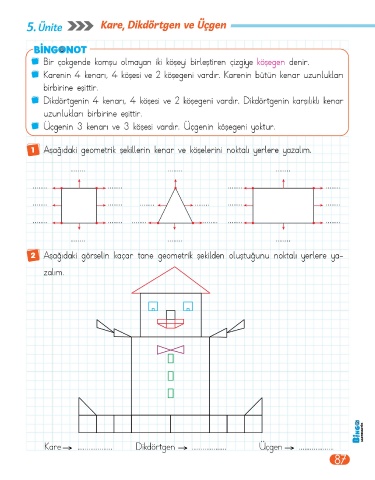 5. Ünite Kare, Dikdörtgen ve Üçgen
BİNGO NOT
Bir çokgende komşu olmayan iki köşeyi birleştiren çizgiye köşegen denir.
Karenin 4 kenarı, 4 köşesi ve 2 köşegeni vardır. Karenin bütün kenar uzunlukları
birbirine eşittir.
Dikdörtgenin 4 kenarı, 4 köşesi ve 2 köşegeni vardır. Dikdörtgenin karşılıklı kenar
uzunlukları birbirine eşittir.
Üçgenin 3 kenarı ve 3 köşesi vardır. Üçgenin köşegeni yoktur.
1 Aşağıdaki geometrik şekillerin kenar ve köşelerini noktalı yerlere yazalım.
2 Aşağıdaki görselin kaçar tane geometrik şekilden oluştuğunu noktalı yerlere ya-
zalım.
Kare → ................ Dikdörtgen → ................ Üçgen → ................
BİNGO
87